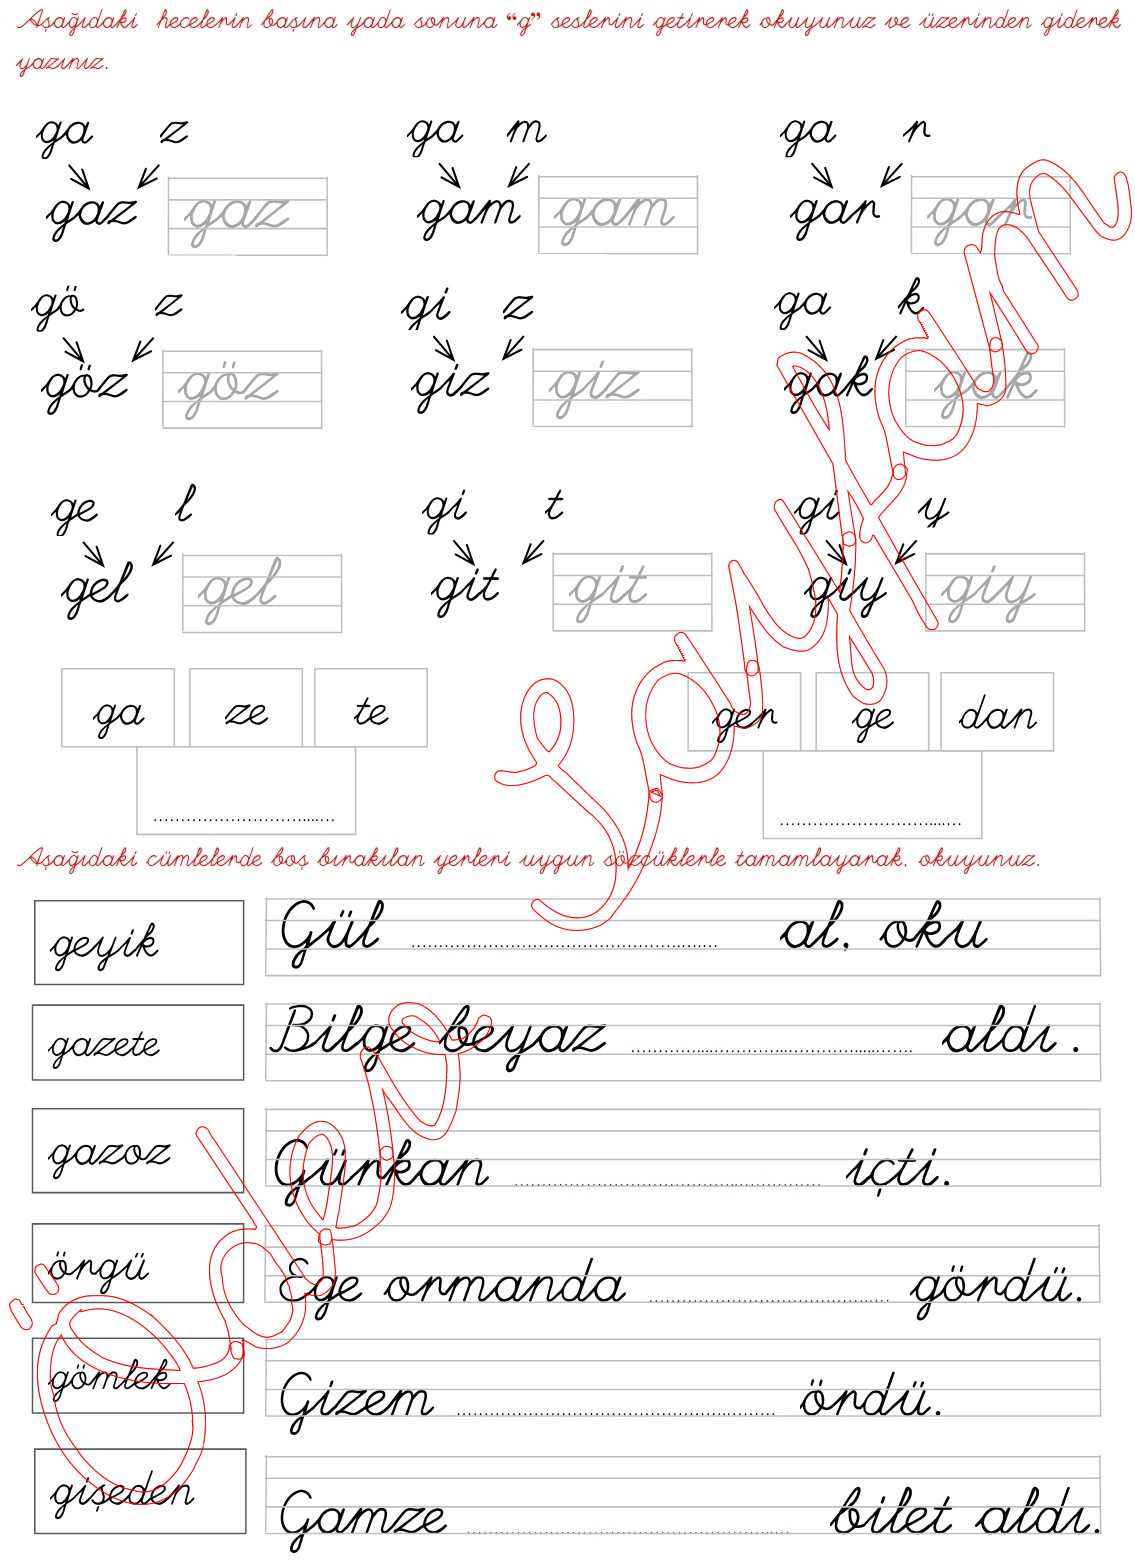 Aşağıdaki hecelerin başına yada sonuna “g” seslerini getirerek okuyunuz ve üzerinden giderek
yazınız.
ga z ga m ga r
gaz gaz gam gam gar gar
gö z gi z ga k
göz göz giz giz gak gak
ge l gi t gi y
gel gel git git giy giy
ga ze te ger ge dan
........................... ...........................
Aşağıdaki cümlelerde boş bırakılan yerleri uygun sözcüklerle tamamlayarak, okuyunuz.
geyik Gül ........................... al, oku
gazete Bilge beyaz ........................... aldı .
gazoz Gürkan ........................... içti.
örgü Ege ormanda ........................... gördü.
gömlek Gizem ........................... ördü.
gişeden Gamze ........................... bilet aldı.